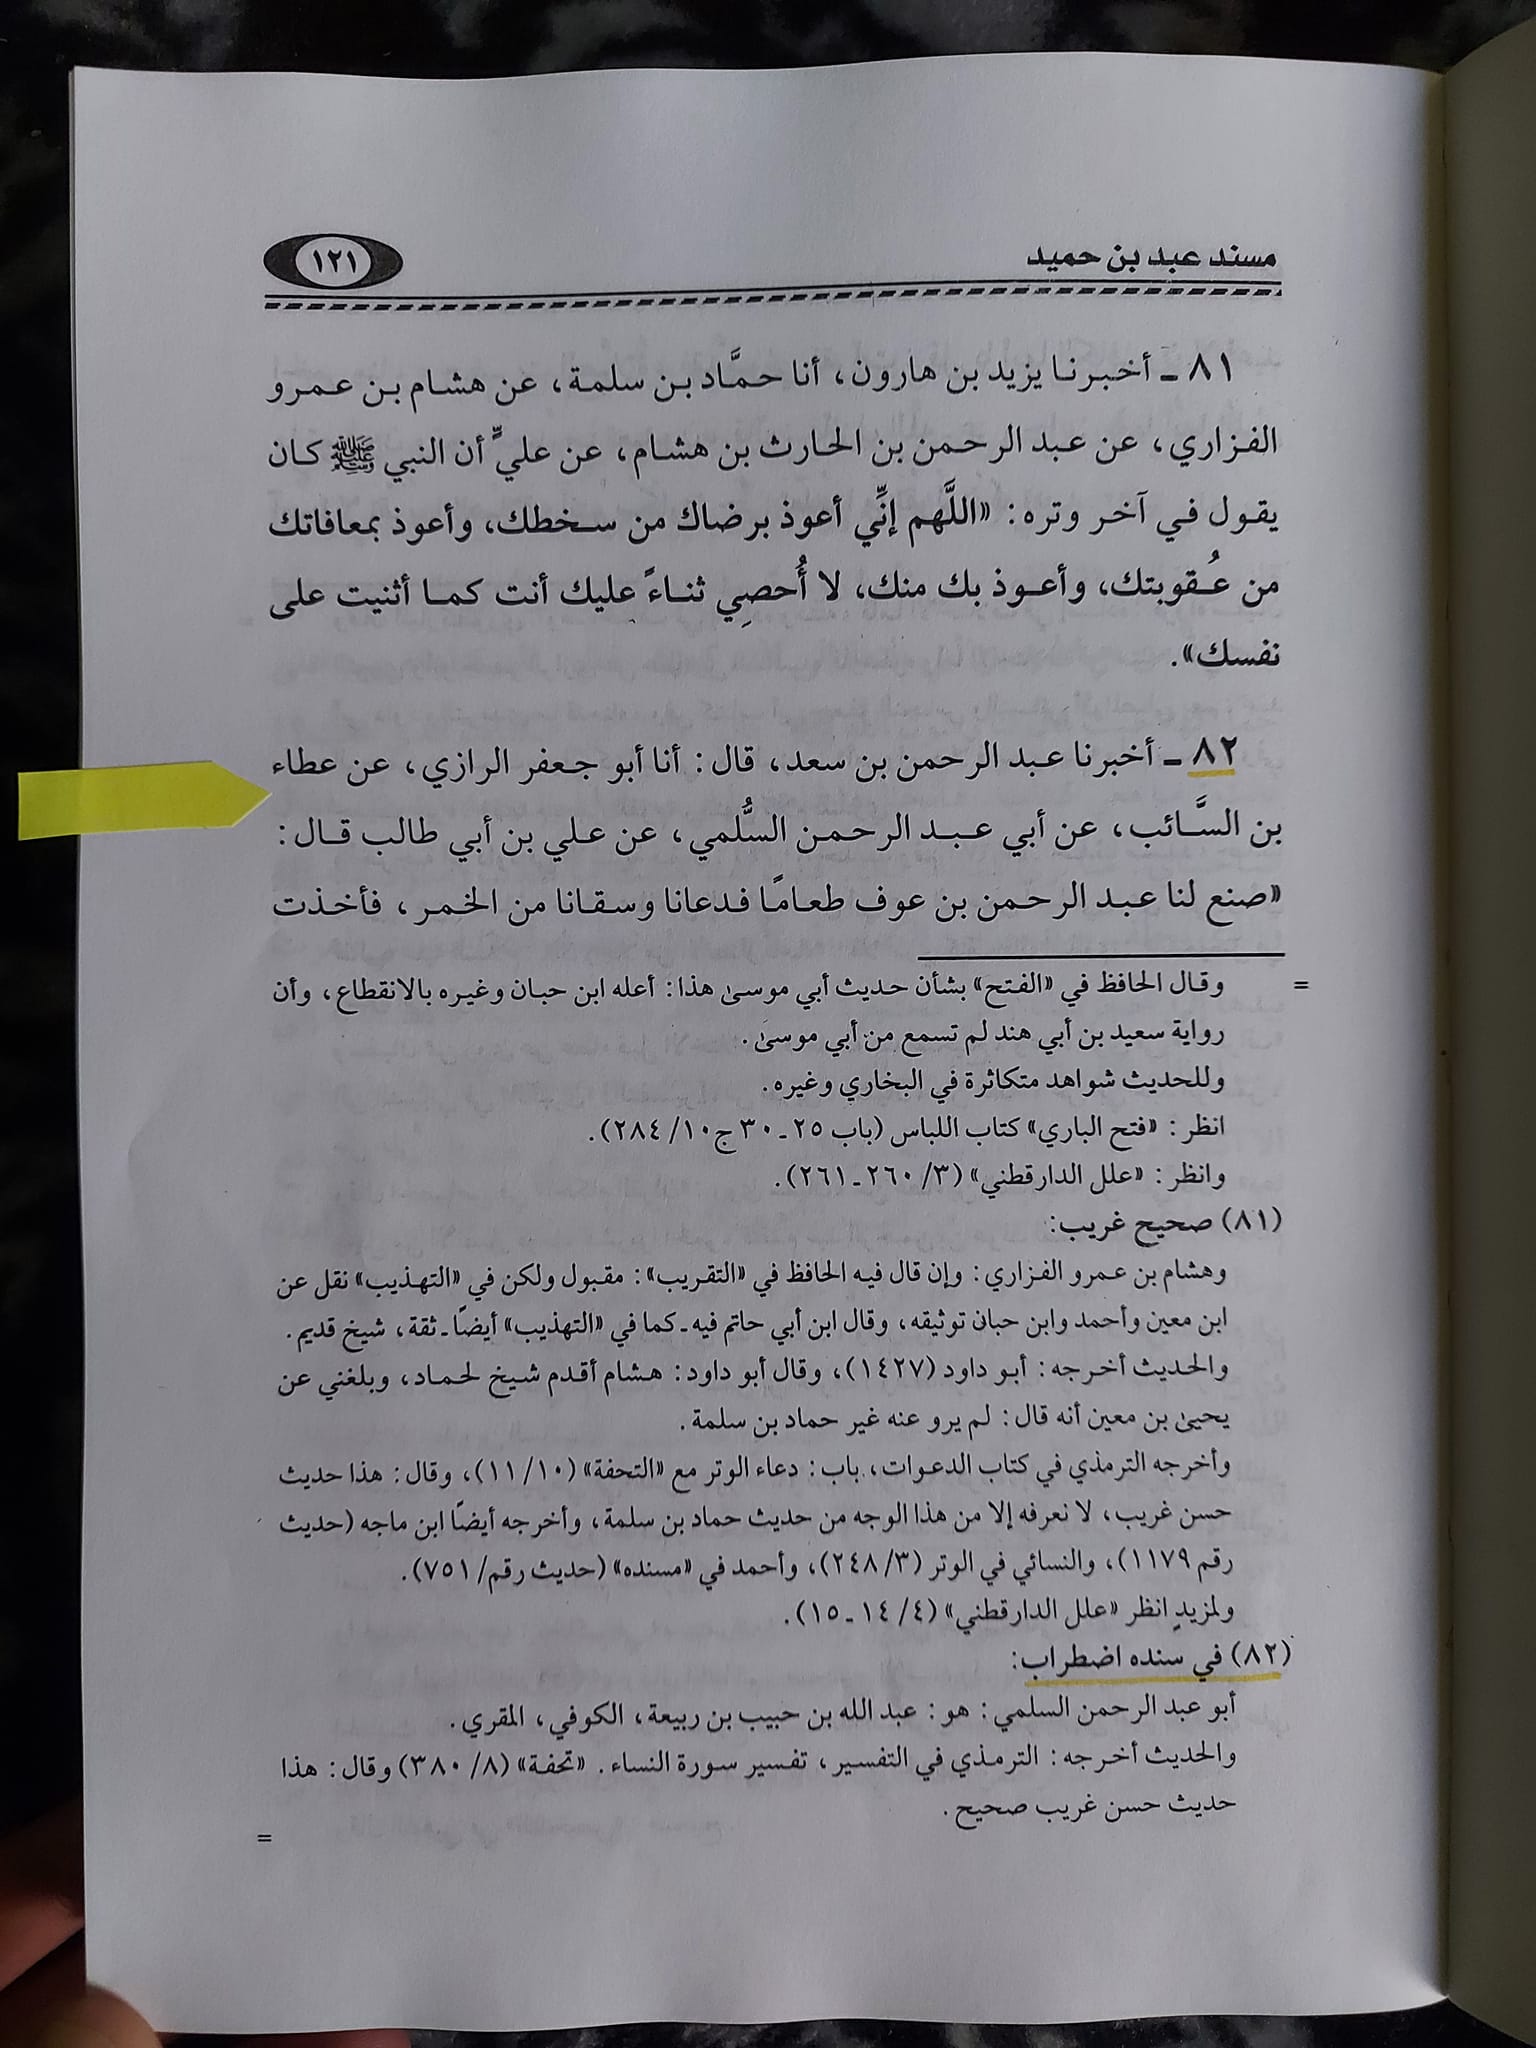 مسند عبد بن حميد
١٢١
٨١ ـ أخبرنا يزيد بن هارون، أنا حمَّاد بن سلمة، عن هشام بن عمرو
الفزاري، عن عبد الرحمن بن الحارث بن هشام، عن عليٍّ أن النبي ﷺ كان
يقول في آخر وتره: «اللَّهم إنِّي أعوذ برضاك من سخطك، وأعوذ بمعافاتك
من عُقوبتك، وأعوذ بك منك، لا أُحصِي ثناءً عليك أنت كما أثنيت على
نفسك».
٨٢ ـ أخبرنا عبد الرحمن بن سعد، قال: أنا أبو جعفر الرازي، عن عطاء
بن السَّائب، عن أبي عبد الرحمن السُّلمي، عن علي بن أبي طالب قال:
«صنع لنا عبد الرحمن بن عوف طعامًا فدعانا وسقانا من الخمر، فأخذت
= وقال الحافظ في «الفتح» بشأن حديث أبي موسىٰ هذا: أعله ابن حبان وغيره بالانقطاع، وأن
رواية سعيد بن أبي هند لم تسمع من أبي موسىٰ.
وللحديث شواهد متكاثرة في البخاري وغيره.
انظر: «فتح الباري» كتاب اللباس (باب ٢٥ ـ ٣٠ ج١٠/ ٢٨٤).
وانظر: «علل الدارقطني» (٣/ ٢٦٠ ـ ٢٦١).
(٨١) صحيح غريب:
وهشام بن عمرو الفزاري: وإن قال فيه الحافظ في «التقريب»: مقبول ولكن في «التهذيب» نقل عن
ابن معين وأحمد وابن حبان توثيقه، وقال ابن أبي حاتم فيه ـ كما في «التهذيب» أيضًا ـ ثقة، شيخ قديم.
والحديث أخرجه: أبو داود (١٤٢٧)، وقال أبو داود: هشام أقدم شيخ لحماد، وبلغني عن
يحيىٰ بن معين أنه قال: لم يرو عنه غير حماد بن سلمة.
وأخرجه الترمذي في كتاب الدعوات، باب: دعاء الوتر مع «التحفة» (١٠/ ١١)، وقال: هذا حديث
حسن غريب، لا نعرفه إلا من هذا الوجه من حديث حماد بن سلمة، وأخرجه أيضًا ابن ماجه (حديث
رقم ١١٧٩)، والنسائي في الوتر (٣/ ٢٤٨)، وأحمد في «مسنده» (حديث رقم/ ٧٥١).
ولمزيدٍ انظر «علل الدارقطني» (٤/ ١٤ ـ ١٥).
(٨٢) في سنده اضطراب:
أبو عبد الرحمن السلمي: هو: عبد الله بن حبيب بن ربيعة، الكوفي، المقري.
والحديث أخرجه: الترمذي في التفسير، تفسير سورة النساء. «تحفة» (٨/ ٣٨٠) وقال: هذا
حديث حسن غريب صحيح.
=